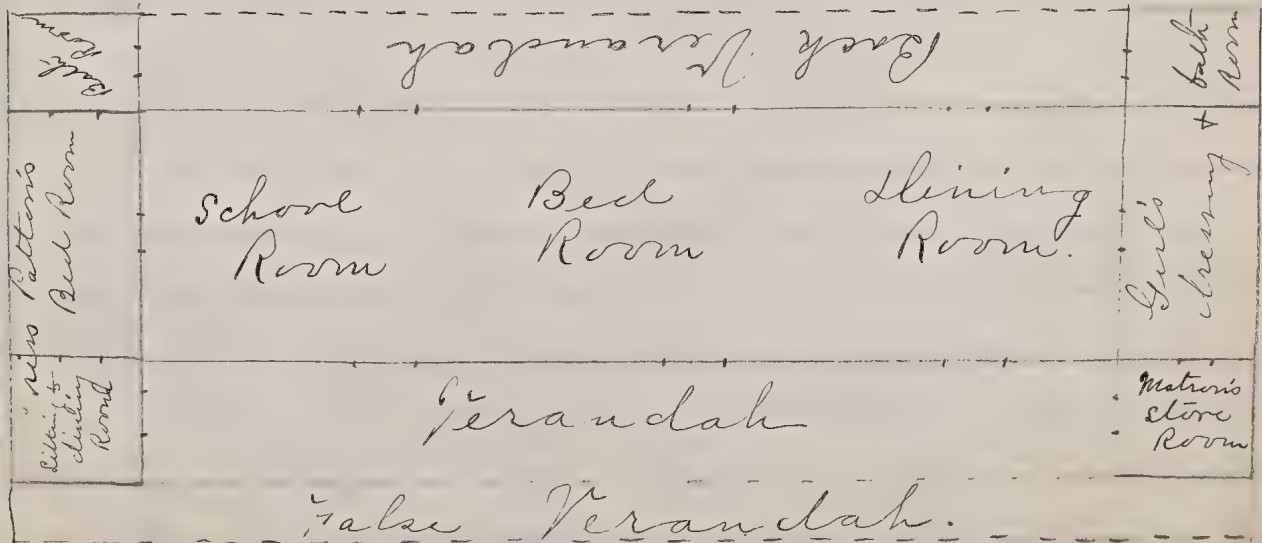 Bath
Room
Back Verandah
bath
Room
Miss Patton's
Bed Room
School
Room
Bed
Room
Dining
Room.
Girl's
dressing +
Sitting &
dining
Room
Verandah
Matron's
store
Room
False Verandah.